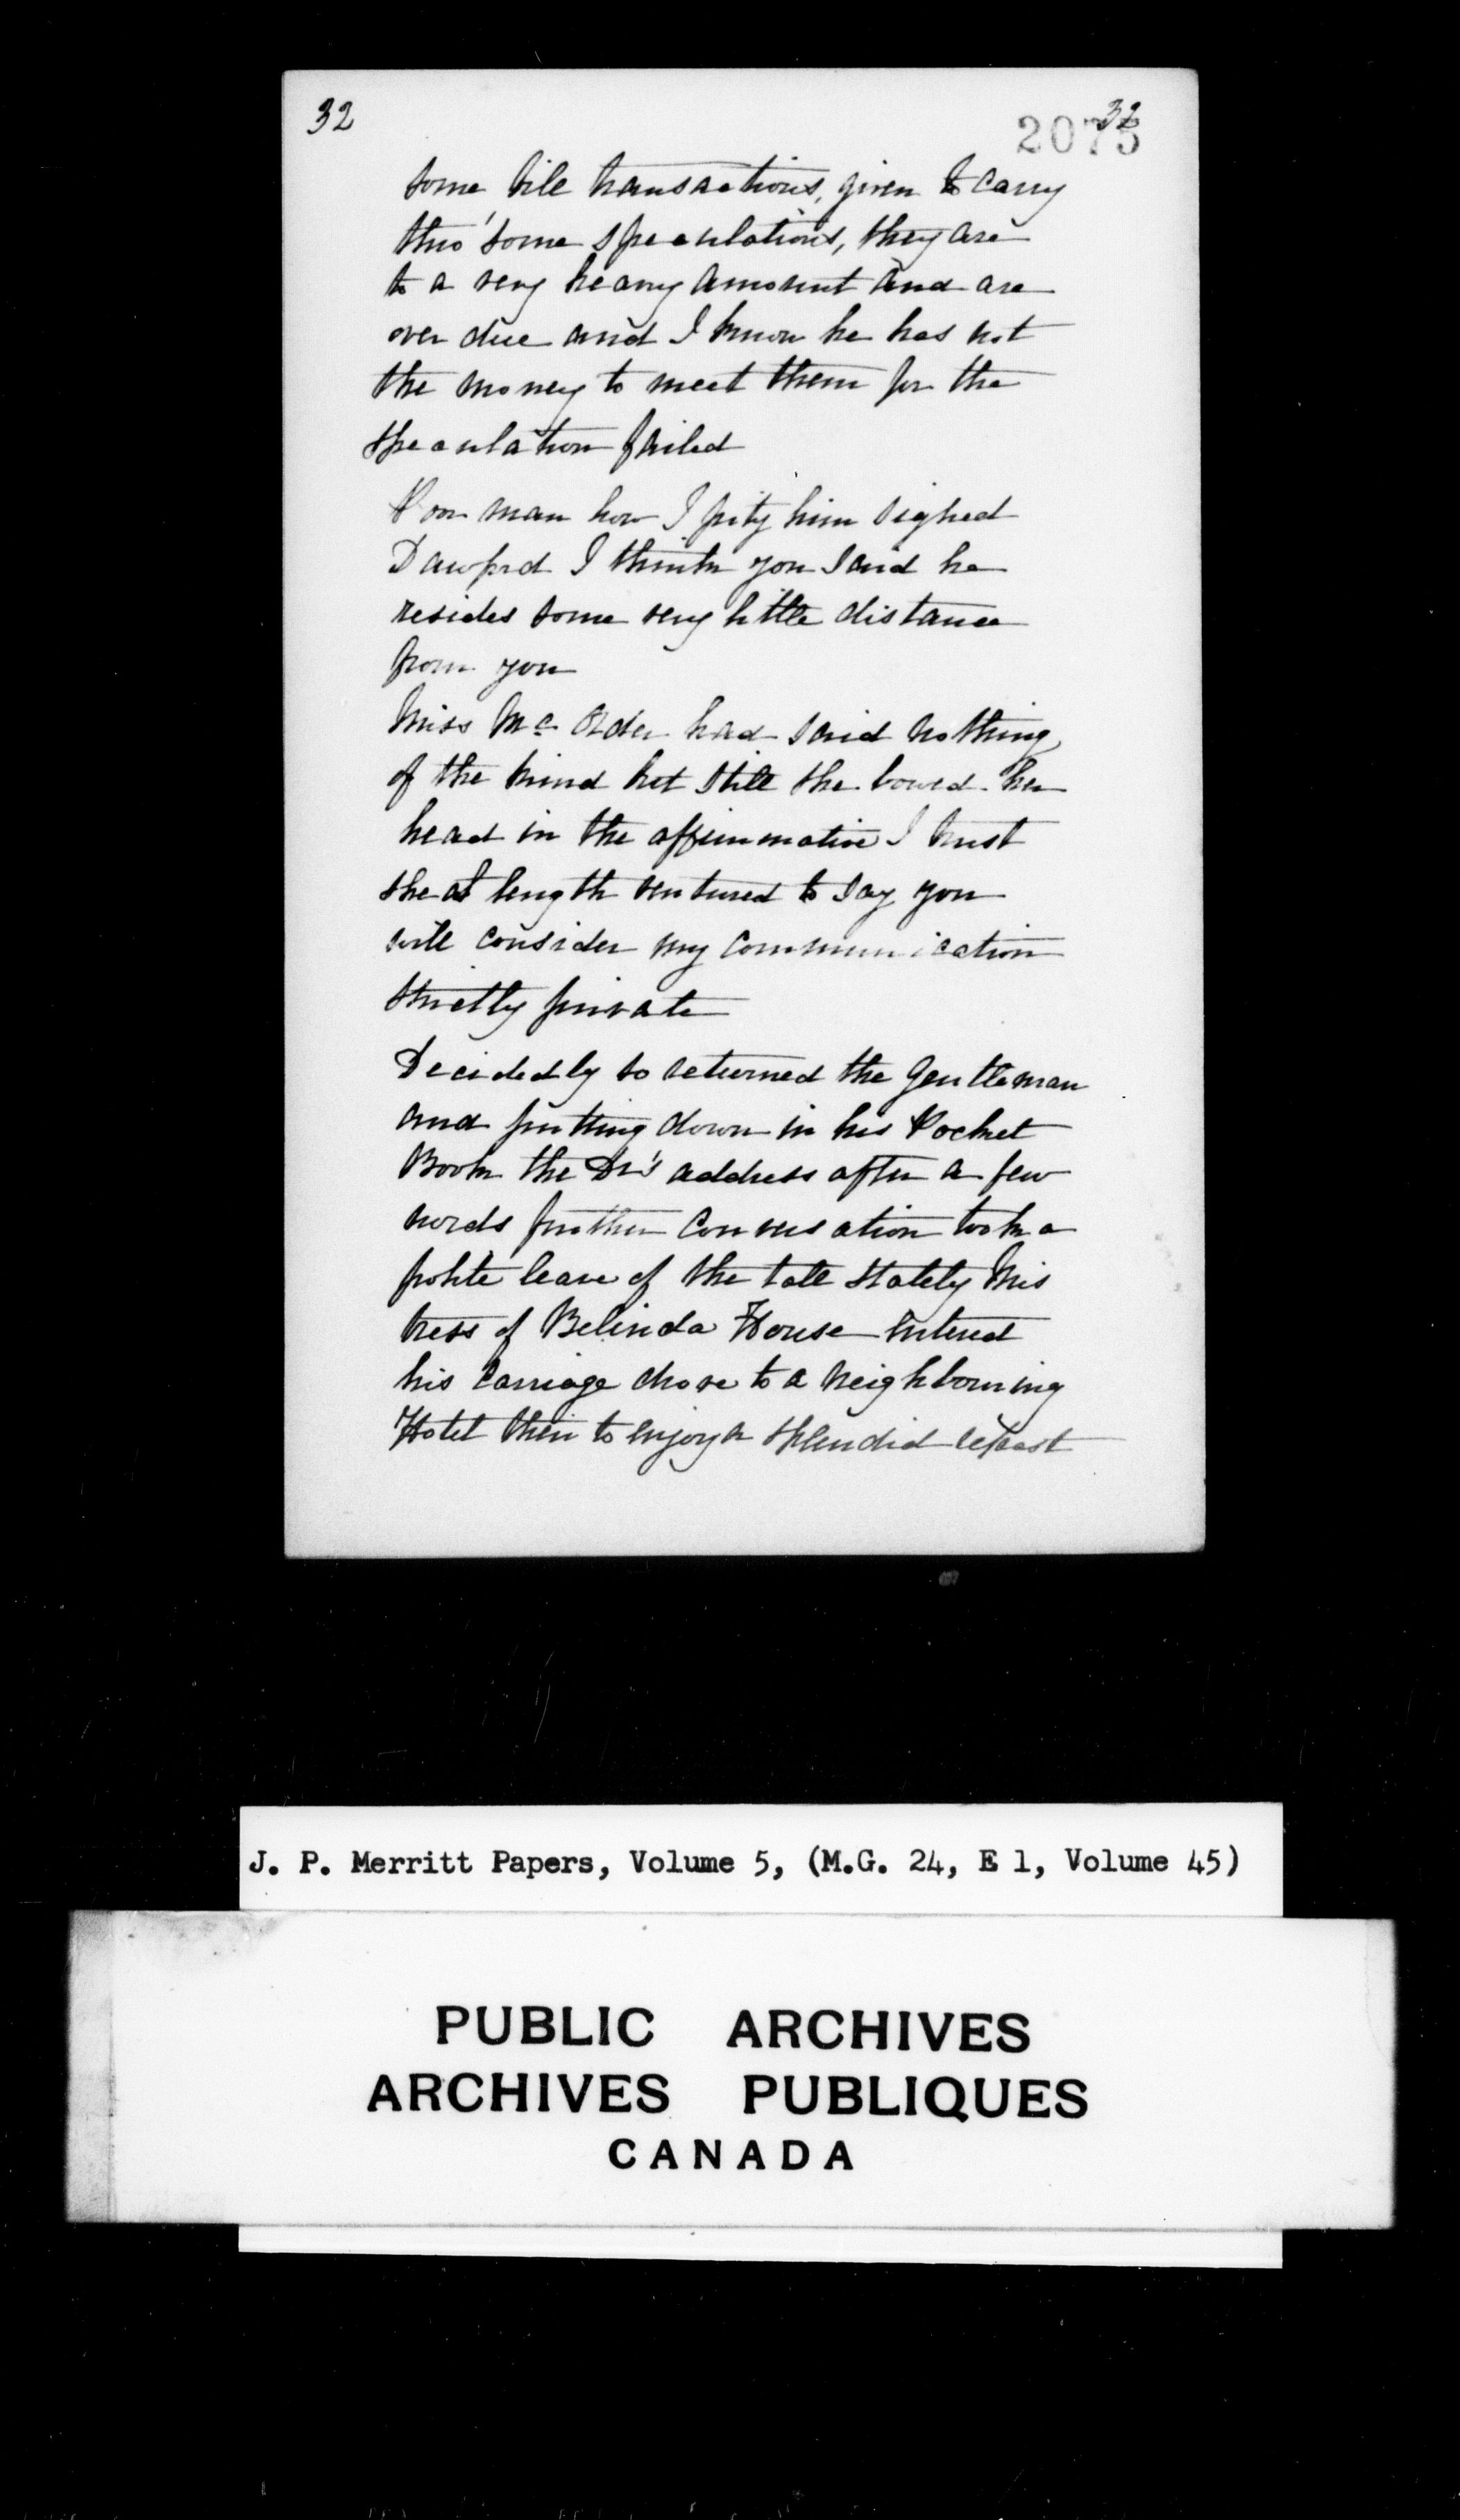 32
32
2075
some bill transactions, given to carry
thro' some speculations, they are
to a very heavy amount and are
over due and I know he has not
the money to meet them for the
speculation failed
Poor man how I pity him sighed
Dawford I think you said he
resides some very little distance
from you
Miss Mc Older had said nothing
of the kind but still she bowed her
head in the affirmative I trust
she at length ventured to say you
will consider my communication
strictly private
Decidedly so returned the Gentleman
and putting down in his Pocket
Book the Dr's address after a few
words further conversation took a
polite leave of the tall stately Mis
tress of Belinda House entered
his carriage drove to a neighbouring
Hotel then to enjoy a splendid repast
J. P. Merritt Papers, Volume 5, (M.G. 24, E 1, Volume 45)
PUBLIC ARCHIVES
ARCHIVES PUBLIQUES
CANADA